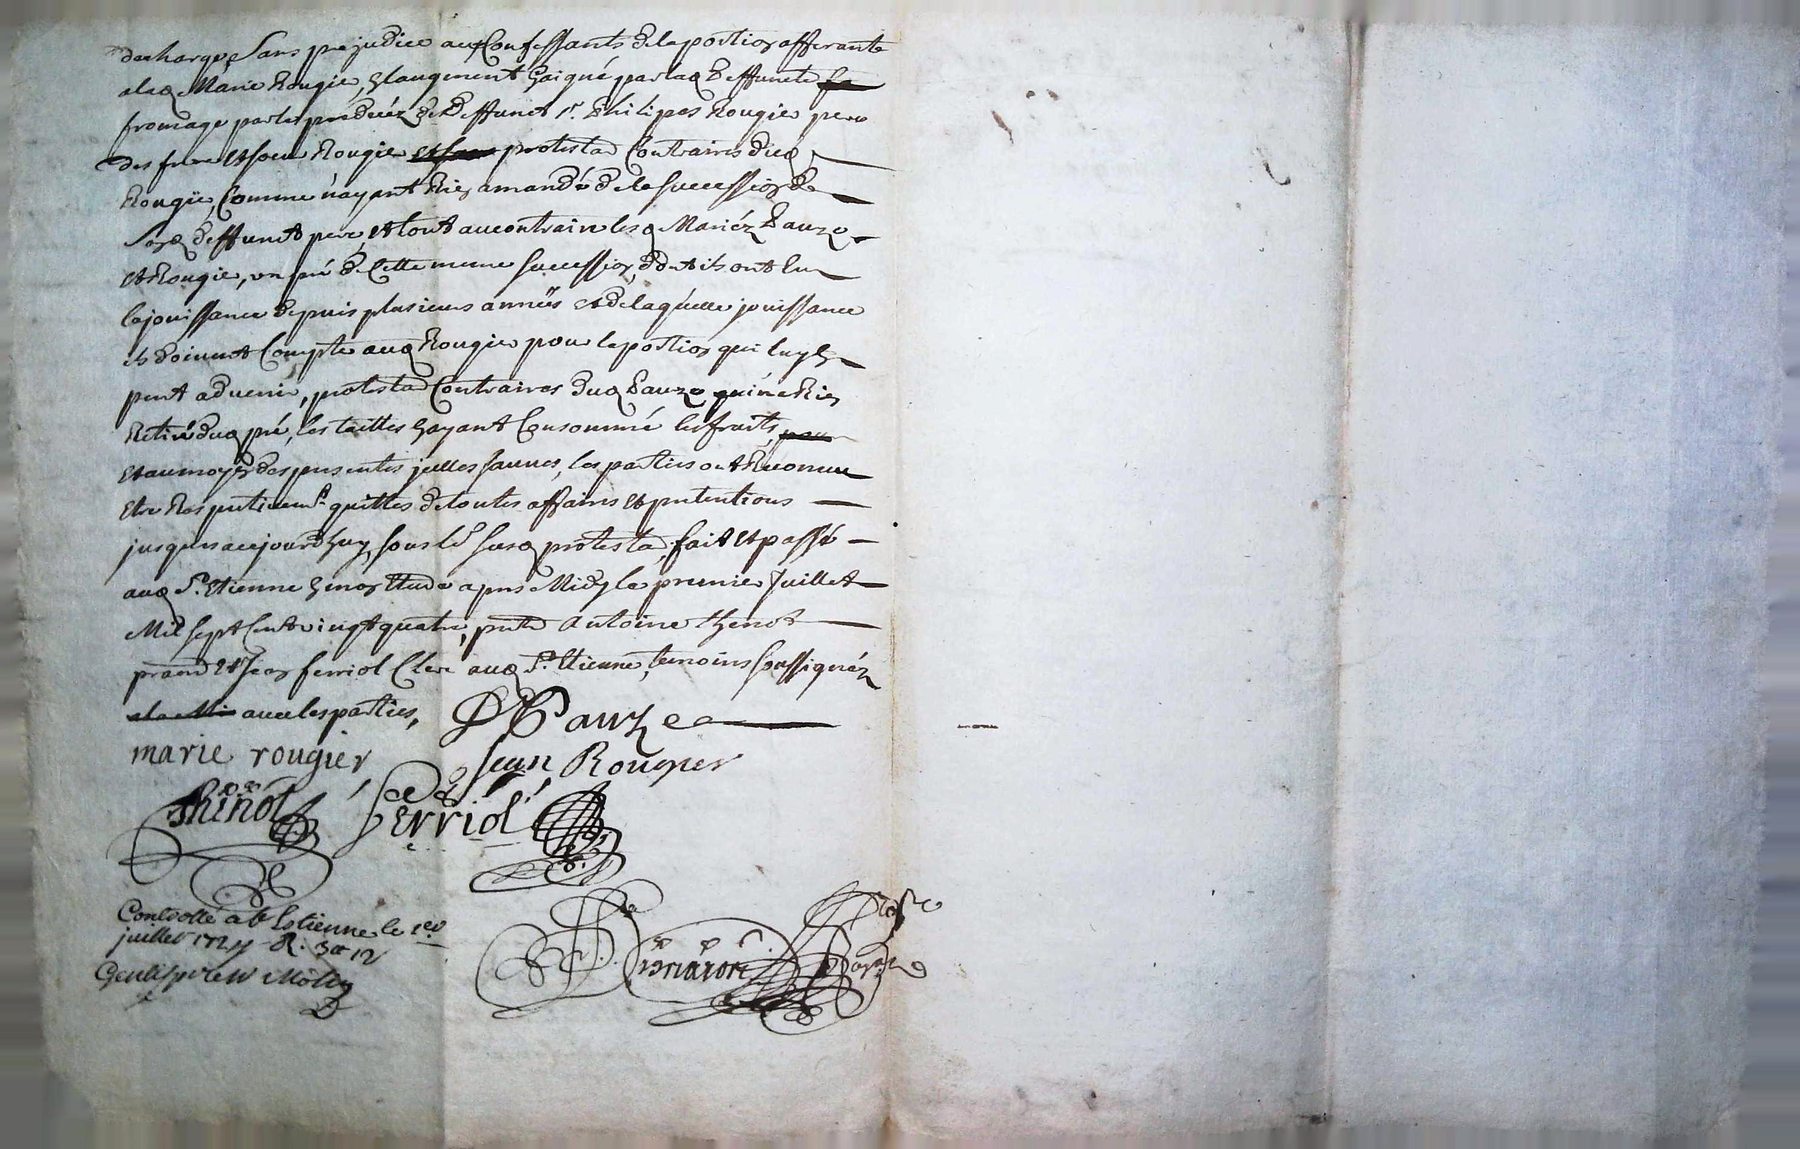 descharge Sans prejudice aux Confessants de la portion afferante
alad Marie Rougier, & laugment Gaigné par lad deffuncte
fromage par le predecéz de deffunct Sr. Philipes Rougier pere
des frere et soeur Rougier protesta Contraires dud
Rougie, Comme n'ayant Rien amandé de la Succession de
Sond deffunct pere, et tout au contraire lesd Mariéz Pauze
et Rougie, un pré de Cette meme Succession, dont ils ont Eu
la jouissance depuis plusieurs années et de laquelle jouissance
ils doivent Compte aud Rougie pour la portion qui luy En
peut advenir, protesta Contraires dud Pauze qui n'a Rien
Retiré dud pré, les tailles Ayant Consommé les fruits,
et au moyen des presentes icelles Sauves, les parties ont Reconnu
Etre Respectivemt. quittes de toutes affaires et pretentions
jusques a ce jourdhuy, Sous led Susd protesta, fait et passé
aud St. Etienne En nos Etude apres Midy le premier Juillet
Mil Sept Cent vingt quatre, pnts Antoine thenot
pratn et Jean ferriol Clerc aud St. Etienne, temoins Soussignéz
avec les parties,
DPauze
marie rougier
Jean Rougier
Thinot
Ferriol
Controllé a St Estienne le 1er
juillet 1724 R. 3tt 12